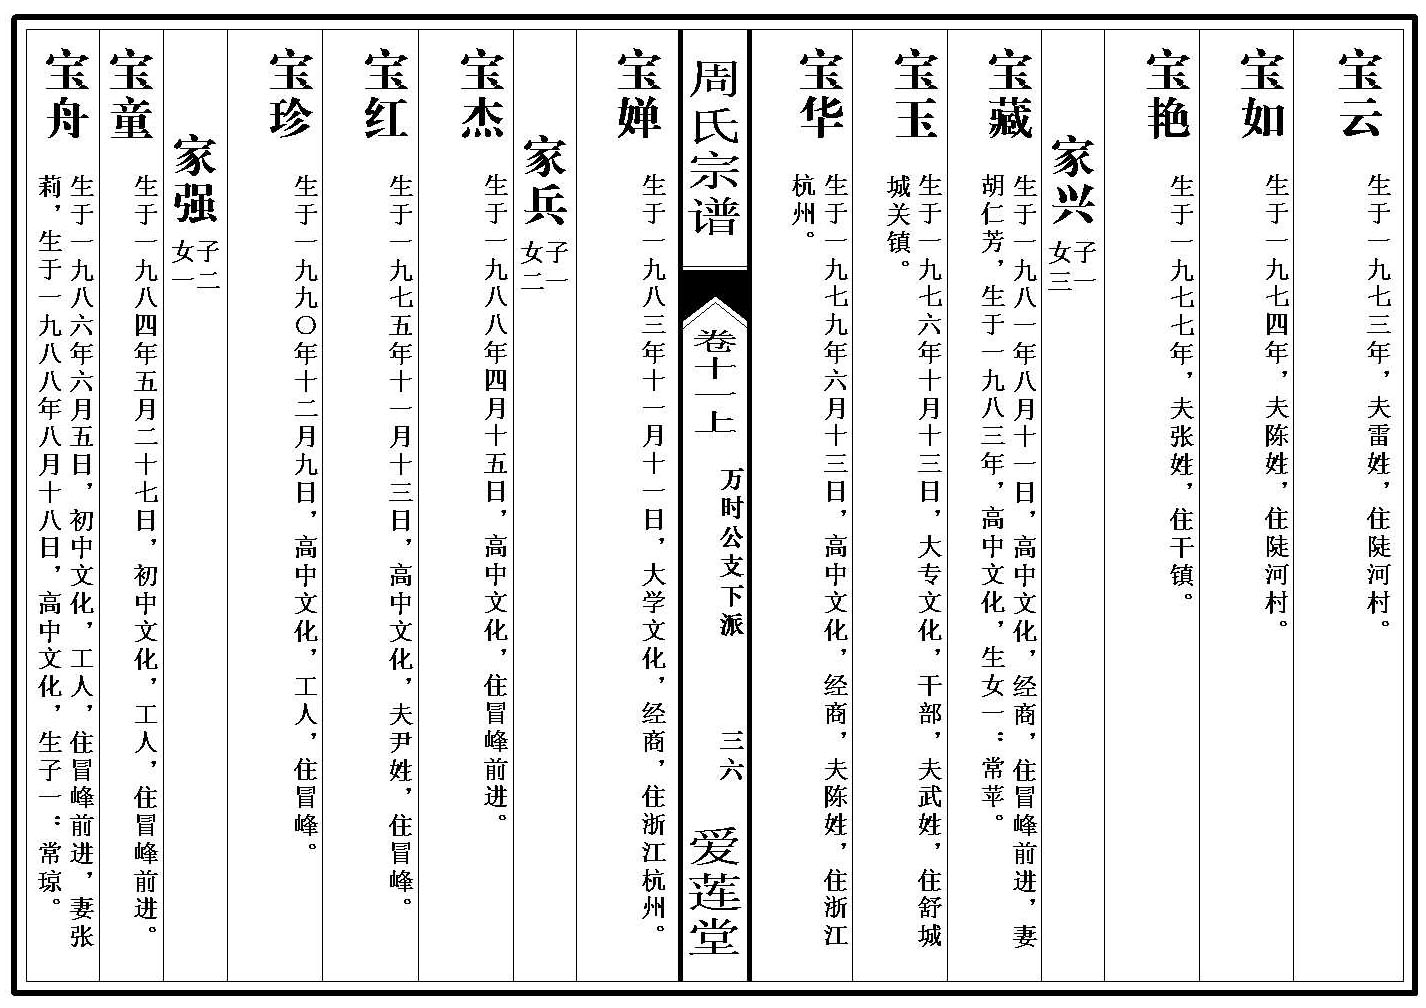 宝云
生于一九七三年，夫雷姓，住陡河村。
宝如
生于一九七四年，夫陈姓，住陡河村。
宝艳
生于一九七七年，夫张姓，住干镇。
家兴
子一
女三
宝藏
生于一九八一年八月十一日，高中文化，经商，住冒峰前进，妻
胡仁芳，生于一九八三年，高中文化，生女一：常苹。
宝玉
生于一九七六年十月十三日，大专文化，干部，夫武姓，住舒城
城关镇。
宝华
生于一九七九年六月十三日，高中文化，经商，夫陈姓，住浙江
杭州。
周氏宗谱
卷十一上
万时公支下派
三六
爱莲堂
宝婵
生于一九八三年十一月十一日，大学文化，经商，住浙江杭州。
家兵
子一
女二
宝杰
生于一九八八年四月十五日，高中文化，住冒峰前进。
宝红
生于一九七五年十一月十三日，高中文化，夫尹姓，住冒峰。
宝珍
生于一九九〇年十二月九日，高中文化，工人，住冒峰。
家强
子二
女一
宝童
生于一九八四年五月二十七日，初中文化，工人，住冒峰前进。
宝舟
生于一九八六年六月五日，初中文化，工人，住冒峰前进，妻张
莉，生于一九八八年八月十八日，高中文化，生子一：常琼。